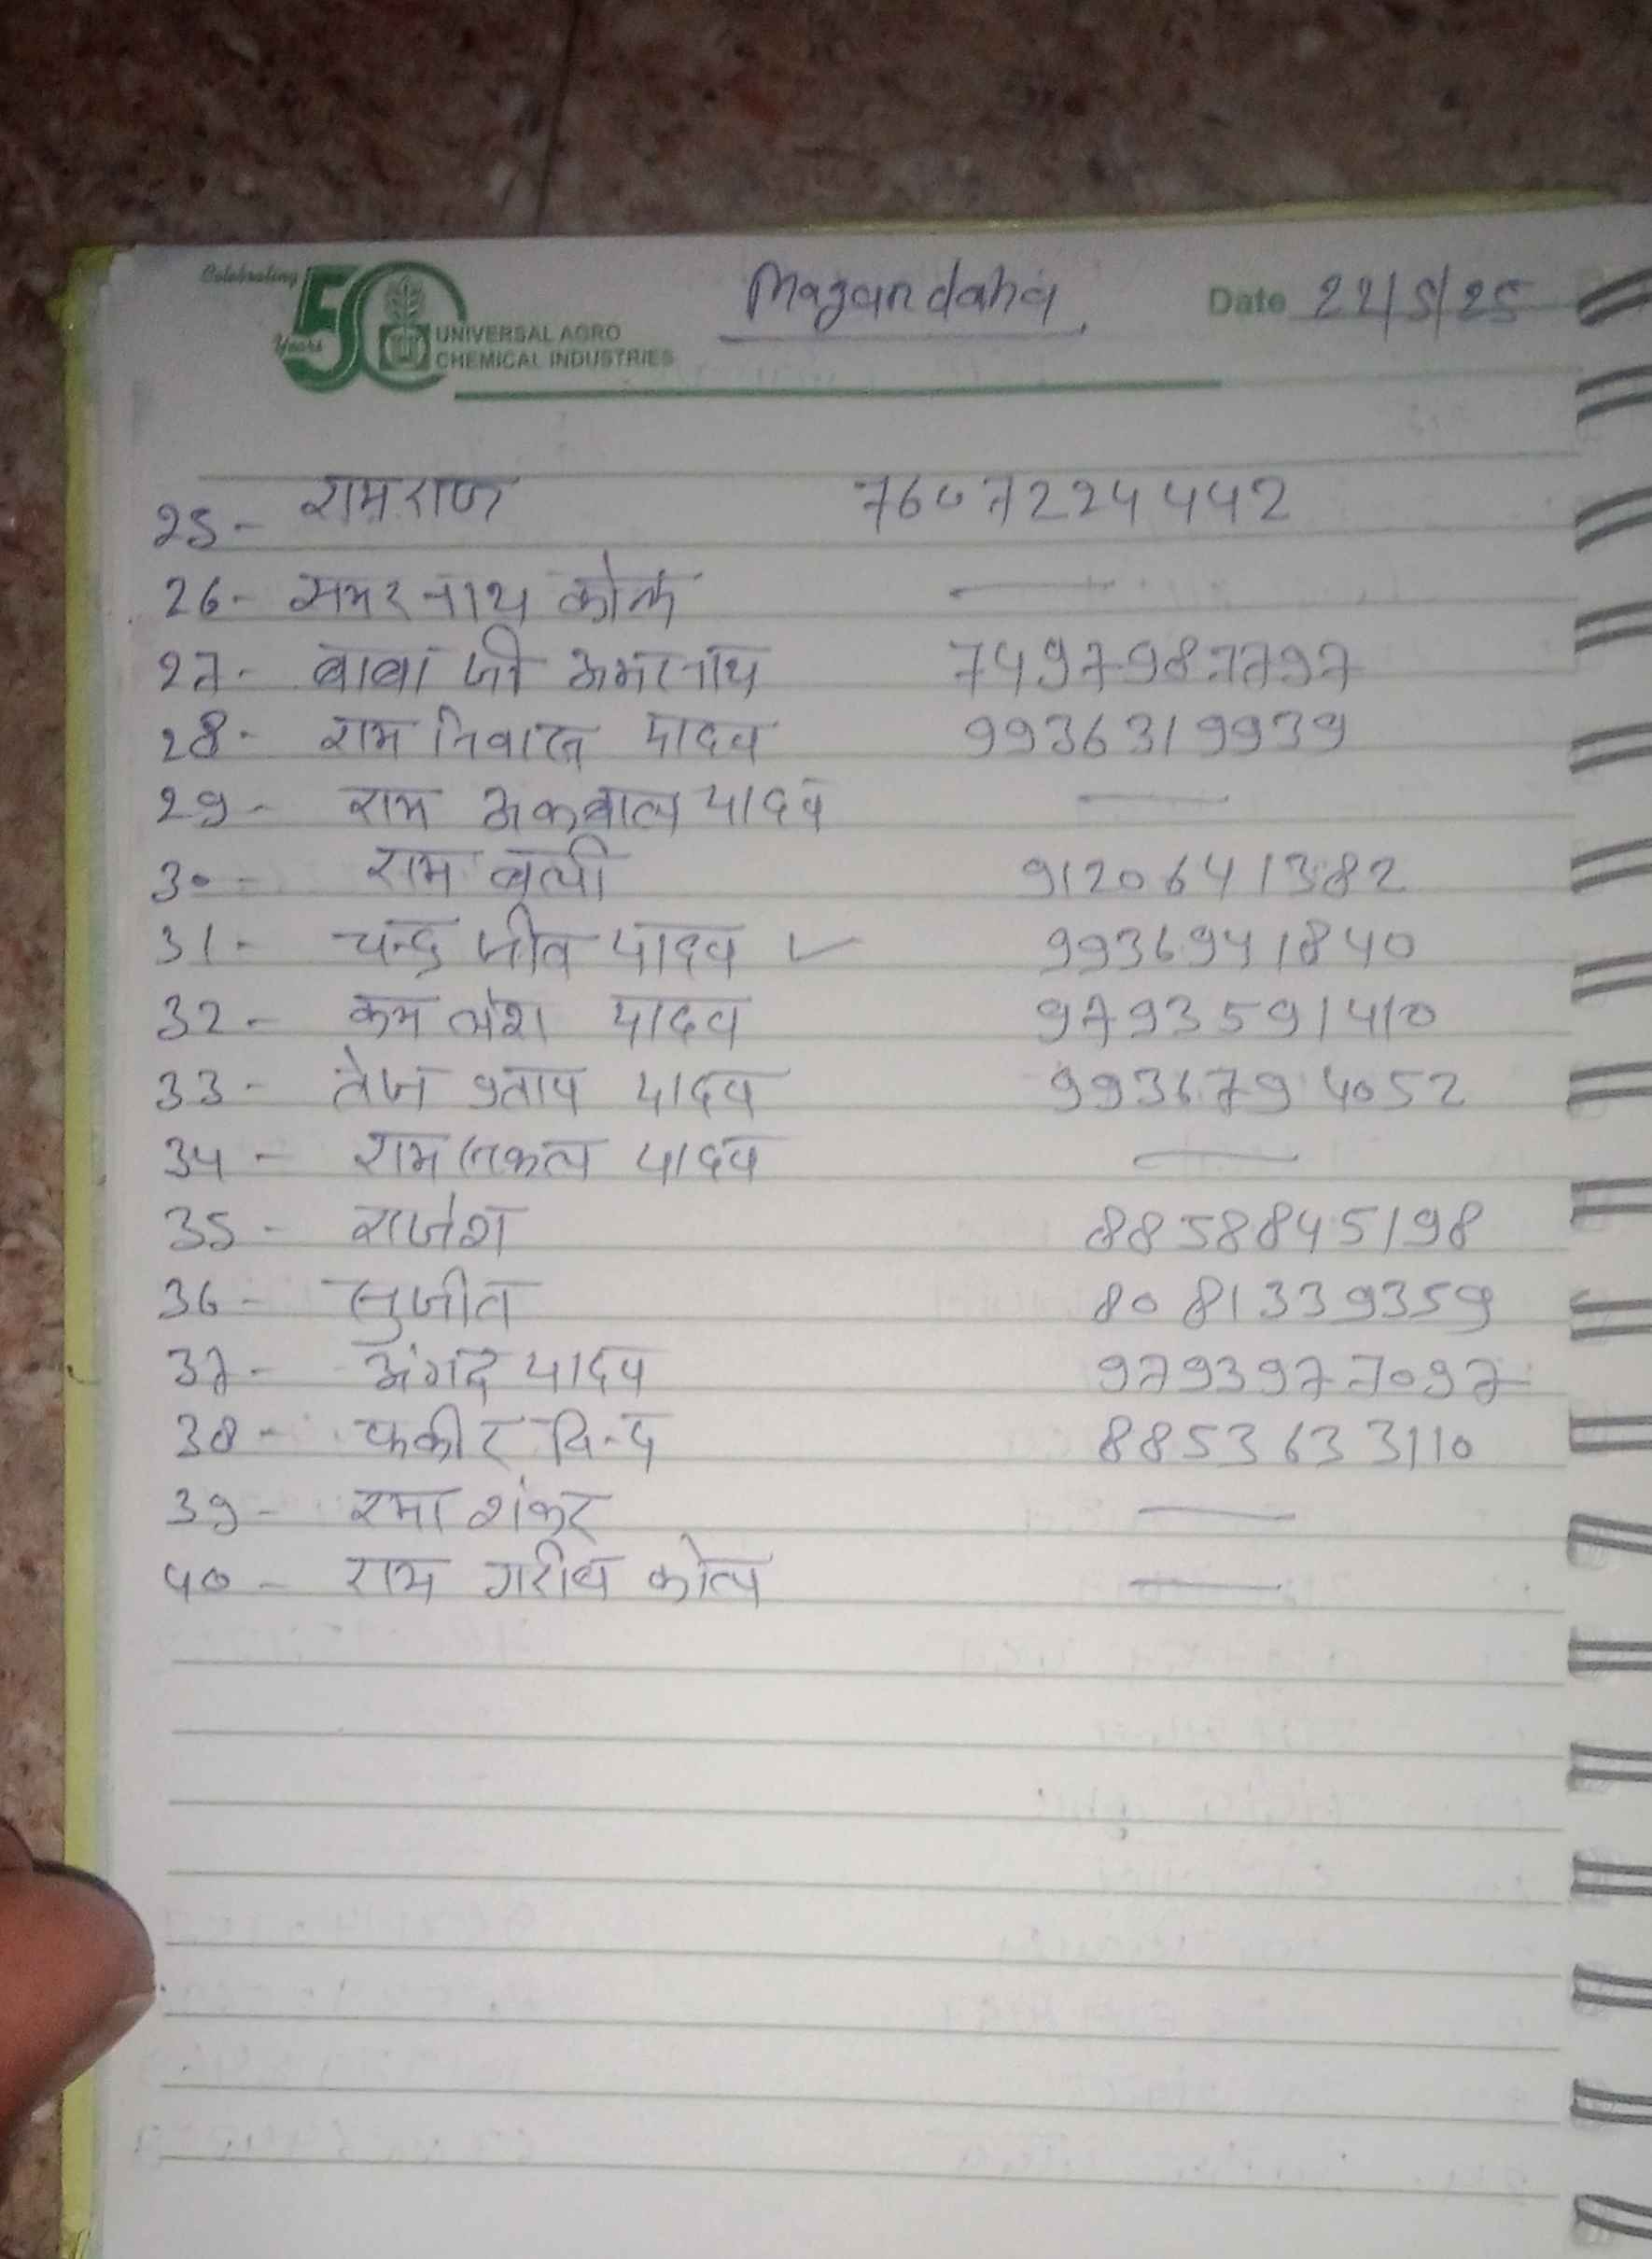 Celebrating
50
Years
UNIVERSAL AGRO
CHEMICAL INDUSTRIES
Magandaha
Date 22/5/25
25- रामराज 7607224442
26- समरनाथ कोल —
27- बाबा जी अमरनाथ 7497987797
28- राम निवास यादव 9936319939
29- राम अकबाल यादव —
30- राम बली 9120641382
31- चन्द्र जीत यादव ✓ 9936941840
32- कमलेश यादव 9793591410
33- तेज प्रताप यादव 9936794052
34- राम नकल यादव —
35- राजेश 8858845198
36- सुजीत 8081339359
37- अंगद यादव 9793977097
38- फकीर बिन्द 8853633110
39- रमा शंकर —
40- राम गरीब कोल —